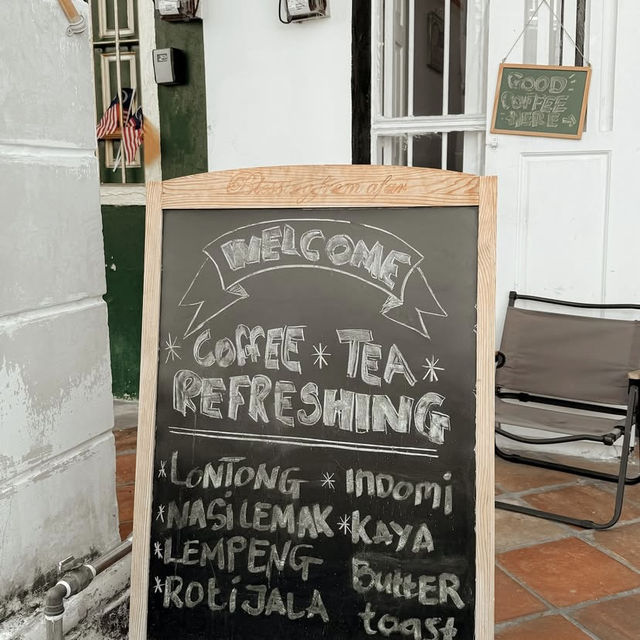 GOOD
COFFEE
HERE →
WELCOME
* COFFEE * TEA *
REFRESHING
* LONTONG
* NASI LEMAK
* LEMPENG
* ROTI JALA
* INDOMI
* KAYA
BUTTER
toast